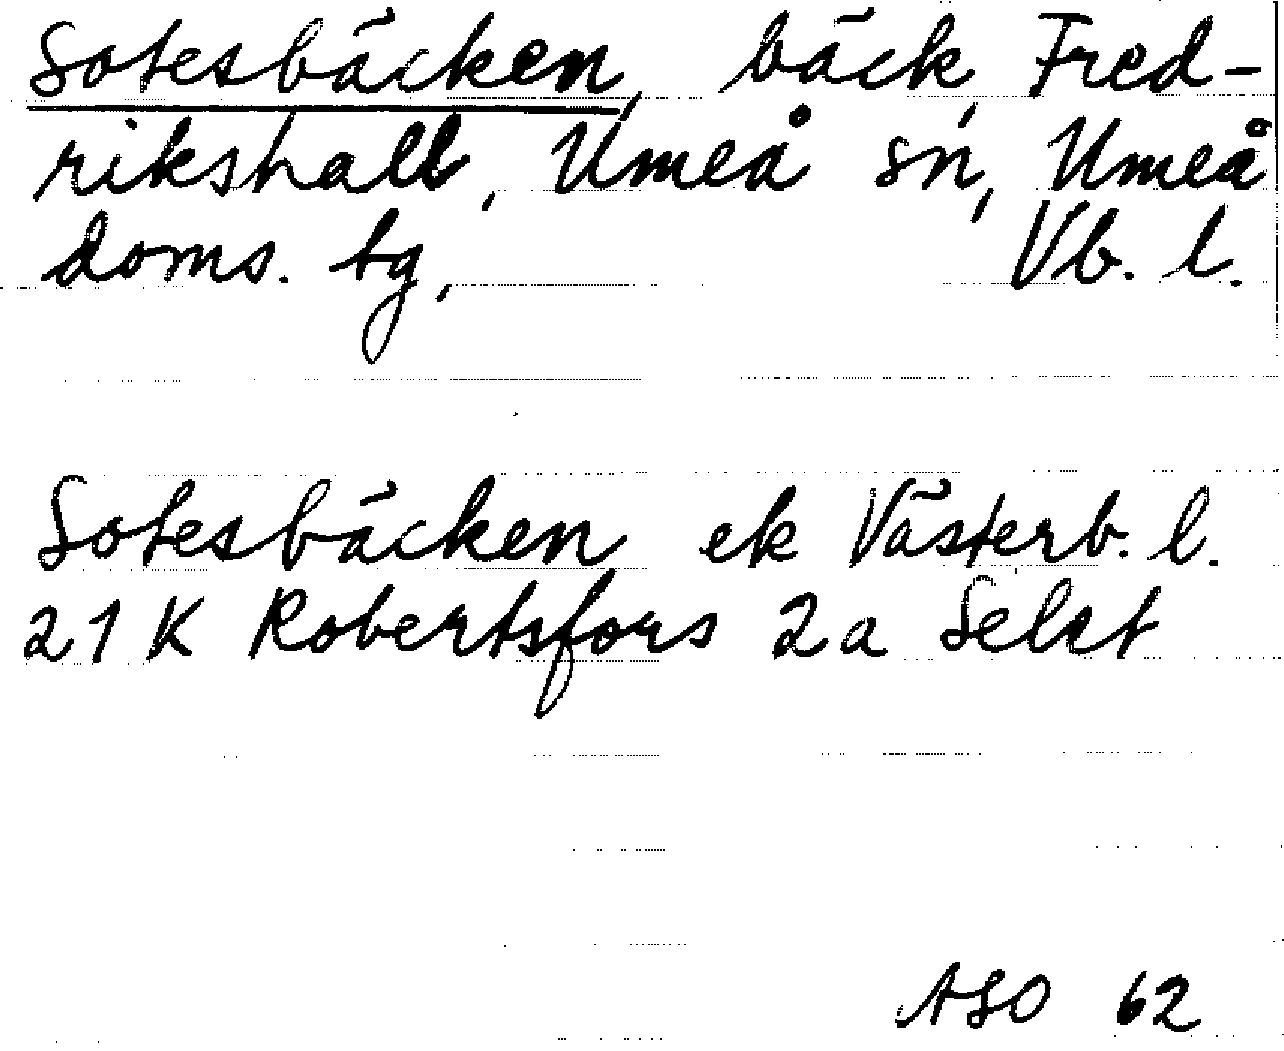 Sotesbäcken, bäck, Fred-
rikshall, Umeå sn, Umeå
doms. tg, Vb. l.
Sotesbäcken ek Västerb. l.
21 K Robertsfors 2a Selet
ASO 62